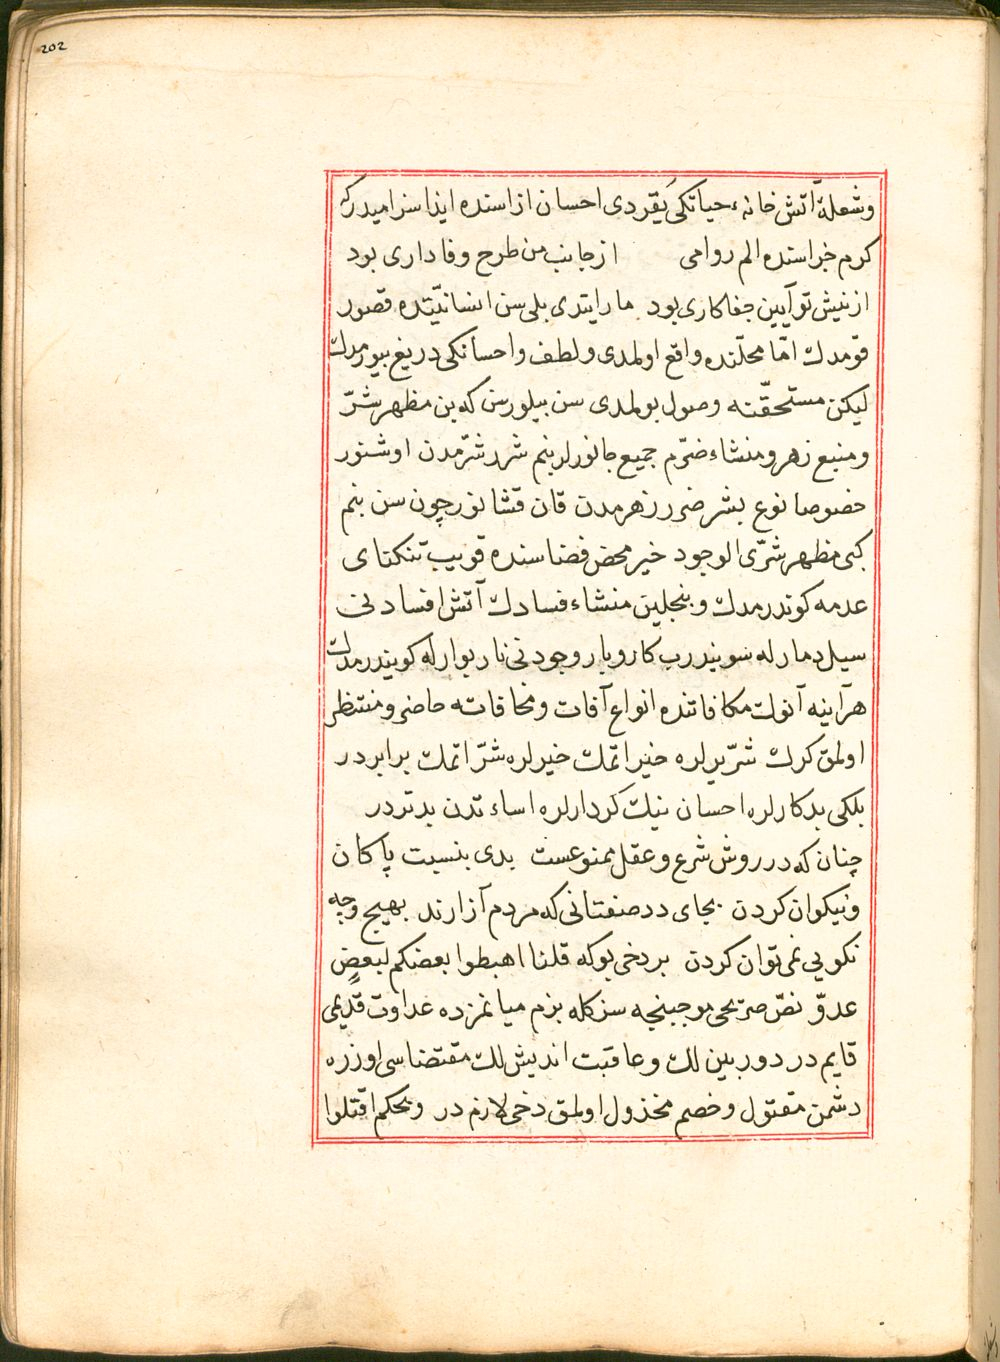 202
وشعلهٔ آتش خانهٔ حیاتکی یقردی احسان ازاسنده ایذا سزامیدرکه
کرم جزاسنده الم روامی از جانب من طرح وفاداری بود
از نیش تو آیین جفاکاری بود مار ایتدی بلی سن انسانیّتده قصور
قومدك امّا محلّنده واقع اولمدی ولطف واحسانکی دریغ بیورمدك
لیکن مستحقّنه وصول بولمدی سن بیلورسن که بن مظهر شرّ
ومنبع زهر ومنشاء ضرّم جمیع جانورلر بنم شررشرّمدن اوشنور
خصوصا نوع بشر ضرر زهرمدن قان قشانور چون سن بنم
کبی مظهر شرّی الوجود خیر محض فضاسنده قویب تنکنای
عدمه کوندرمدك وبنجلین منشاء فسادك آتش افسادنی
سیل دمار له سویندرب کاروبار وجودنی نار بوارله کویندرمدك
هرآینه آنوك مکافاتنده انواع آفات ومخافاته حاضر ومنتظر
اولمق کرك شرّیرلره خیر اتمك خیرلره شرّ اتمك برابردر
بلکی بدکارلره احسان نیك کردارلره اساءتدن بدتردر
چنان که در روش شرع وعقل ممنوعست بدی بنسبت پاکان
ونیکوان کردن بجای ددصفتانی که مردم آزارند بهیچ وجه
نکویی نمی توان کردن بردخی بوکه قلنا اهبطوا بعضکم لبعضٍ
عدوّ نصّ صریحی موجبنجه سزکله بزم میانمزده عداوت قدیمی
قایم در دوربین لك وعاقبت اندیش لك مقتضاسی اوزره
دشمن مقتول وخصم مخذول اولمق دخی لازم در وبحکم اقتلوا